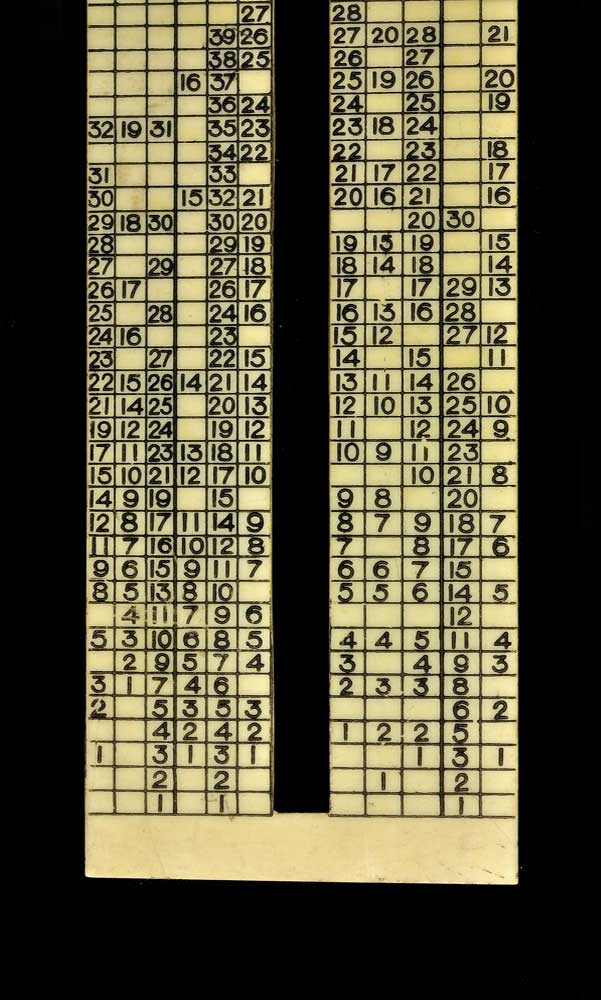 27 28
39 26 27 20 28 21
38 25 26 27
16 37 25 19 26 20
36 24 24 25 19
32 19 31 35 23 23 18 24
34 22 22 23 18
31 33 21 17 22 17
30 15 32 21 20 16 21 16
29 18 30 30 20 20 30
28 29 19 19 15 19 15
27 29 27 18 18 14 18 14
26 17 26 17 17 17 29 13
25 28 24 16 16 13 16 28
24 16 23 15 12 27 12
23 27 22 15 14 15 11
22 15 26 14 21 14 13 11 14 26
21 14 25 20 13 12 10 13 25 10
19 12 24 19 12 11 12 24 9
17 11 23 13 18 11 10 9 11 23
15 10 21 12 17 10 10 21 8
14 9 19 15 9 8 20
12 8 17 11 14 9 8 7 9 18 7
11 7 16 10 12 8 7 8 17 6
9 6 15 9 11 7 6 6 7 15
8 5 13 8 10 5 5 6 14 5
4 11 7 9 6 12
5 3 10 6 8 5 4 4 5 11 4
2 9 5 7 4 3 4 9 3
3 1 7 4 6 2 3 3 8
2 5 3 5 3 6 2
4 2 4 2 1 2 2 5
1 3 1 3 1 1 3 1
2 2 1 2
1 1 1